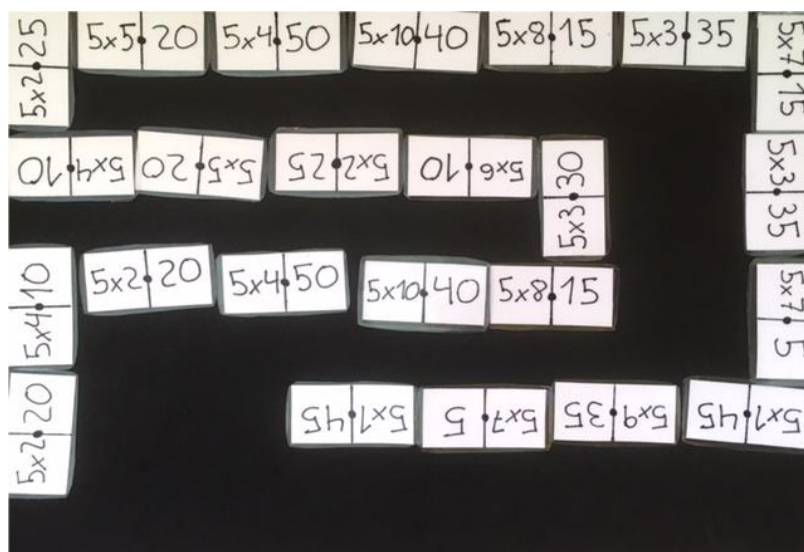 5x2 25
5x5 20
5x4 50
5x10 40
5x8 15
5x3 35
5x7 15
5x4 10
5x5 20
5x2 25
5x6 10
5x3 30
5x3 35
5x4 10
5x2 20
5x4 50
5x10 40
5x8 15
5x7 5
5x2 20
5x1 45
5x7 5
5x9 35
5x1 45